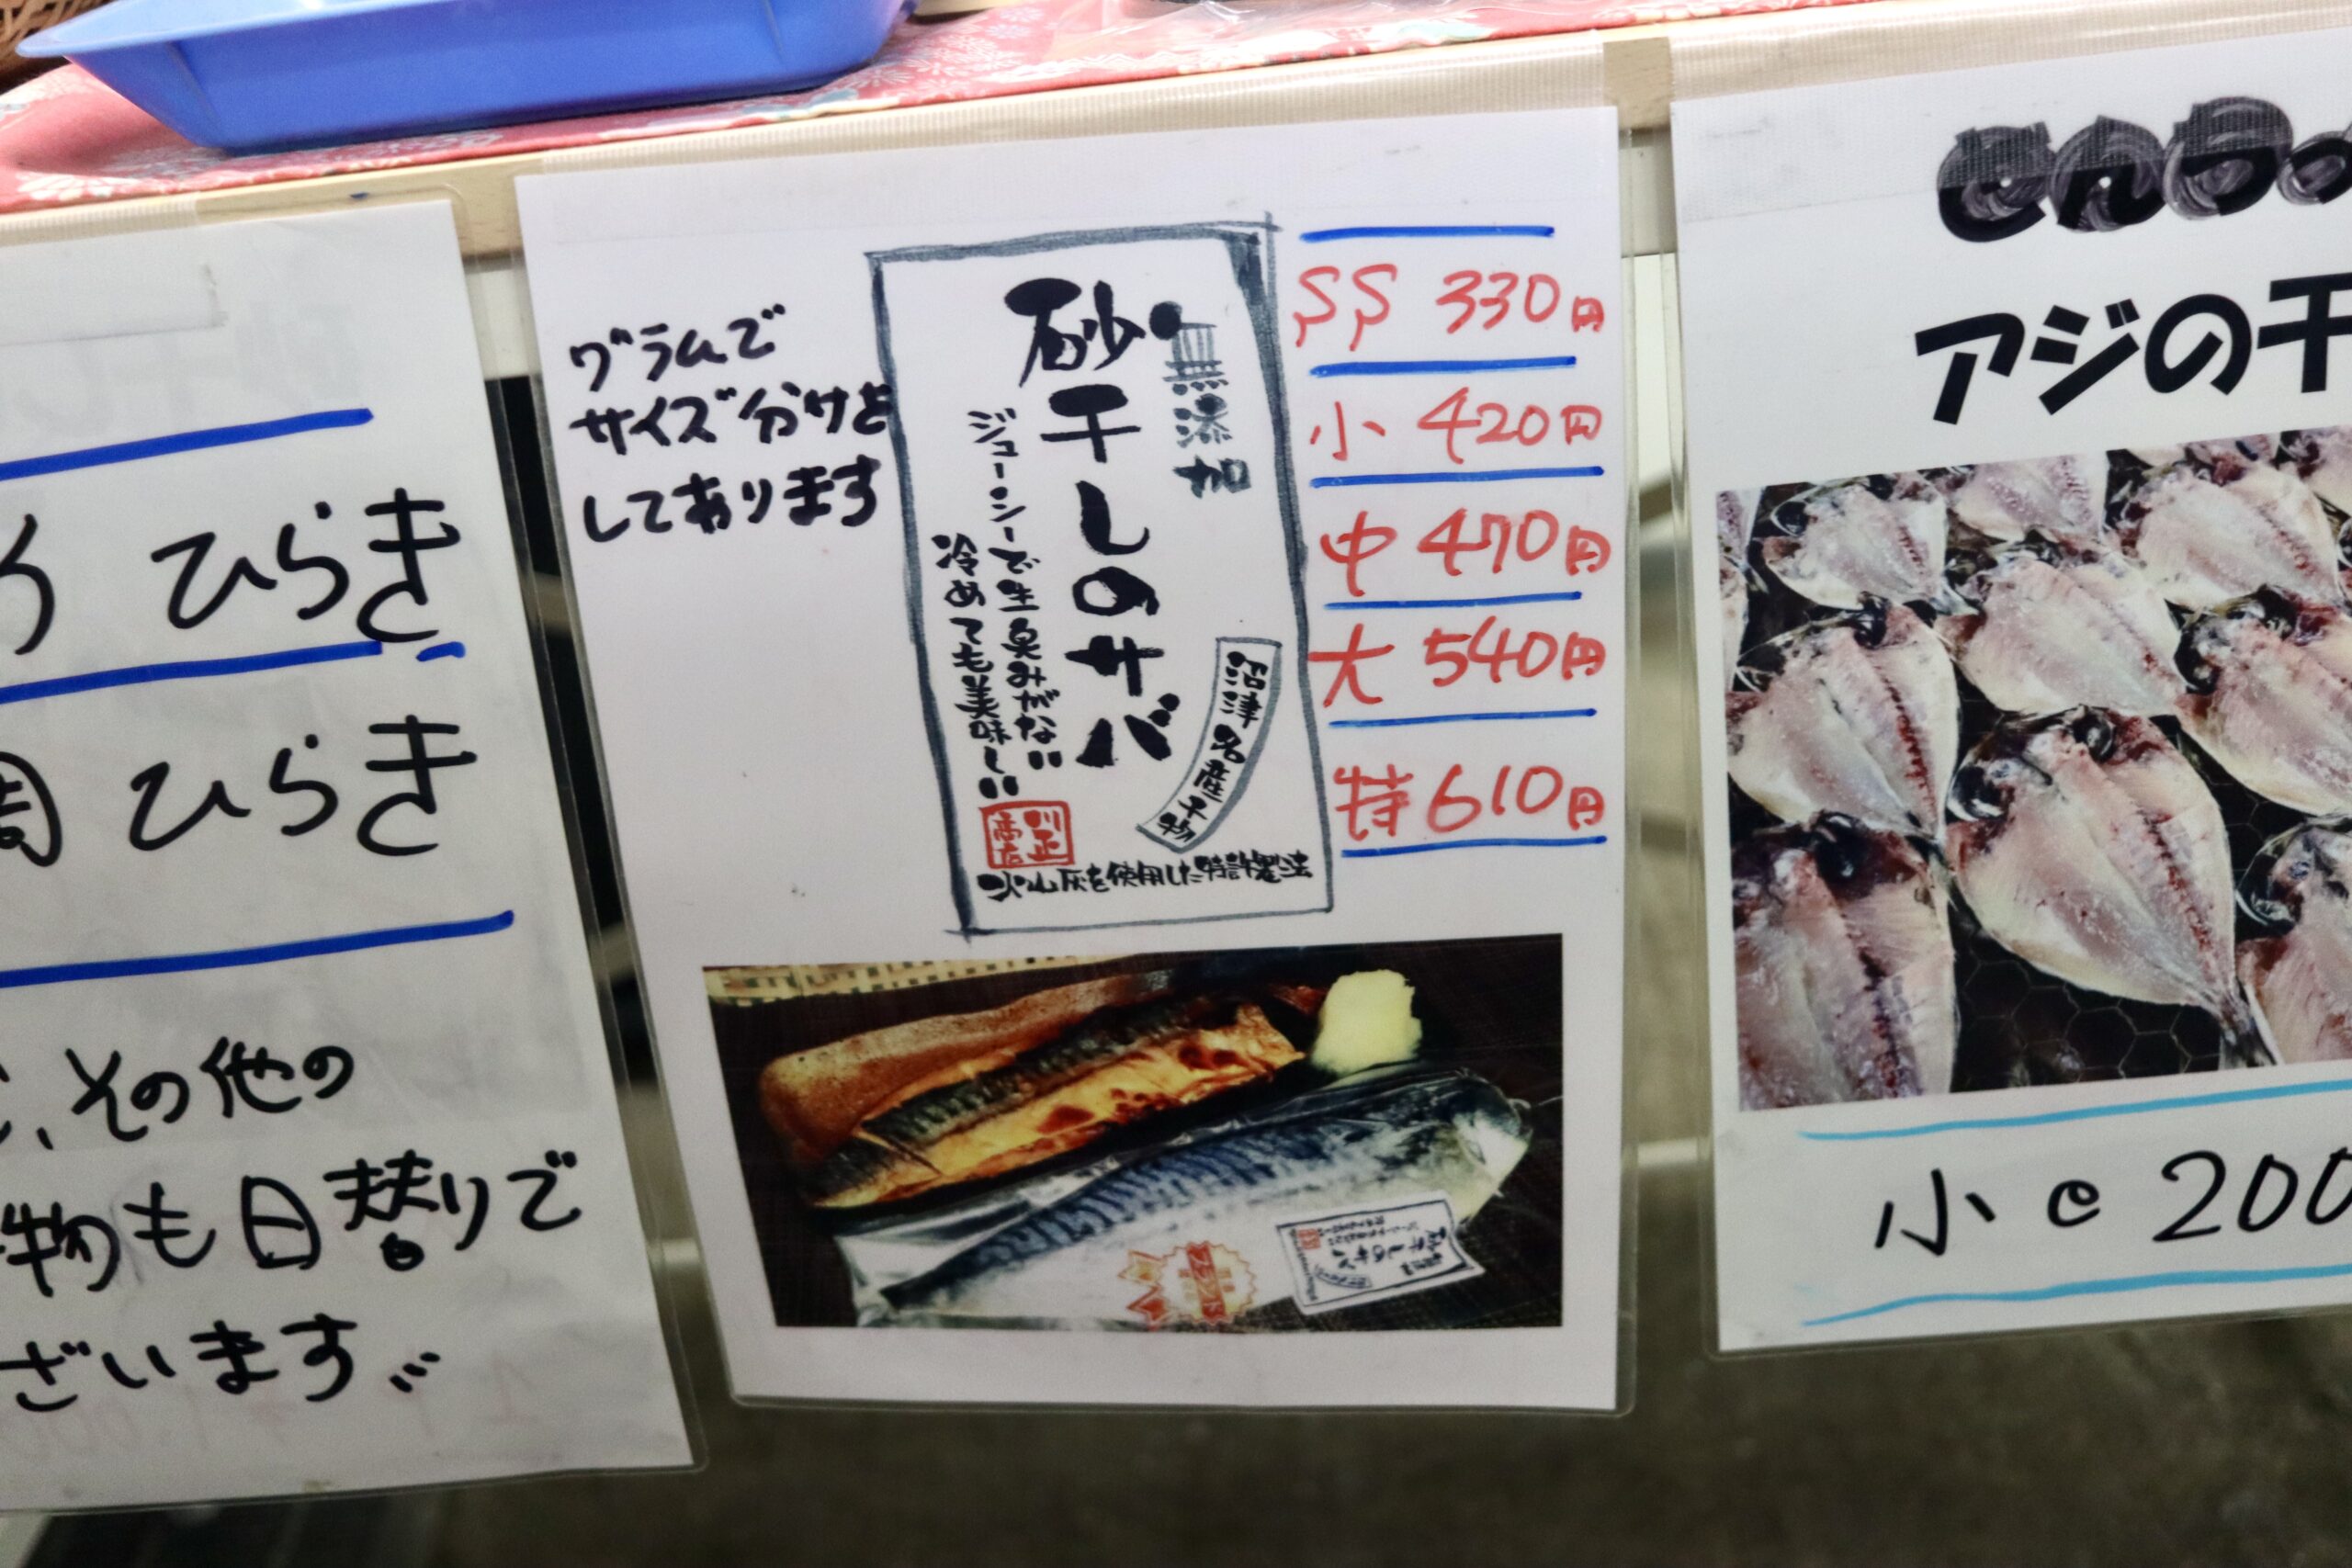 ひらき
周 ひらき
、その他の
物も日替りで
ざいます〃
グラムで
サイズ分けを
してあります
無添加
砂干しのサバ
ジューシーで生臭みがない
冷めても美味しい
沼津名産干物
川正
火山灰を使用した特許製法
SS 330円
小 420円
中 470円
大 540円
特 610円
砂干しのサバ
ぜんぶっ
アジの干
小@200